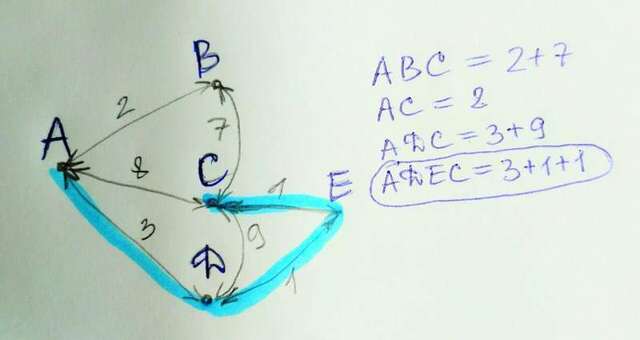 B
2
A
7
8
C
1
E
3
9
D
1
ABC = 2+7
AC = 8
ADC = 3+9
ADEC = 3+1+1